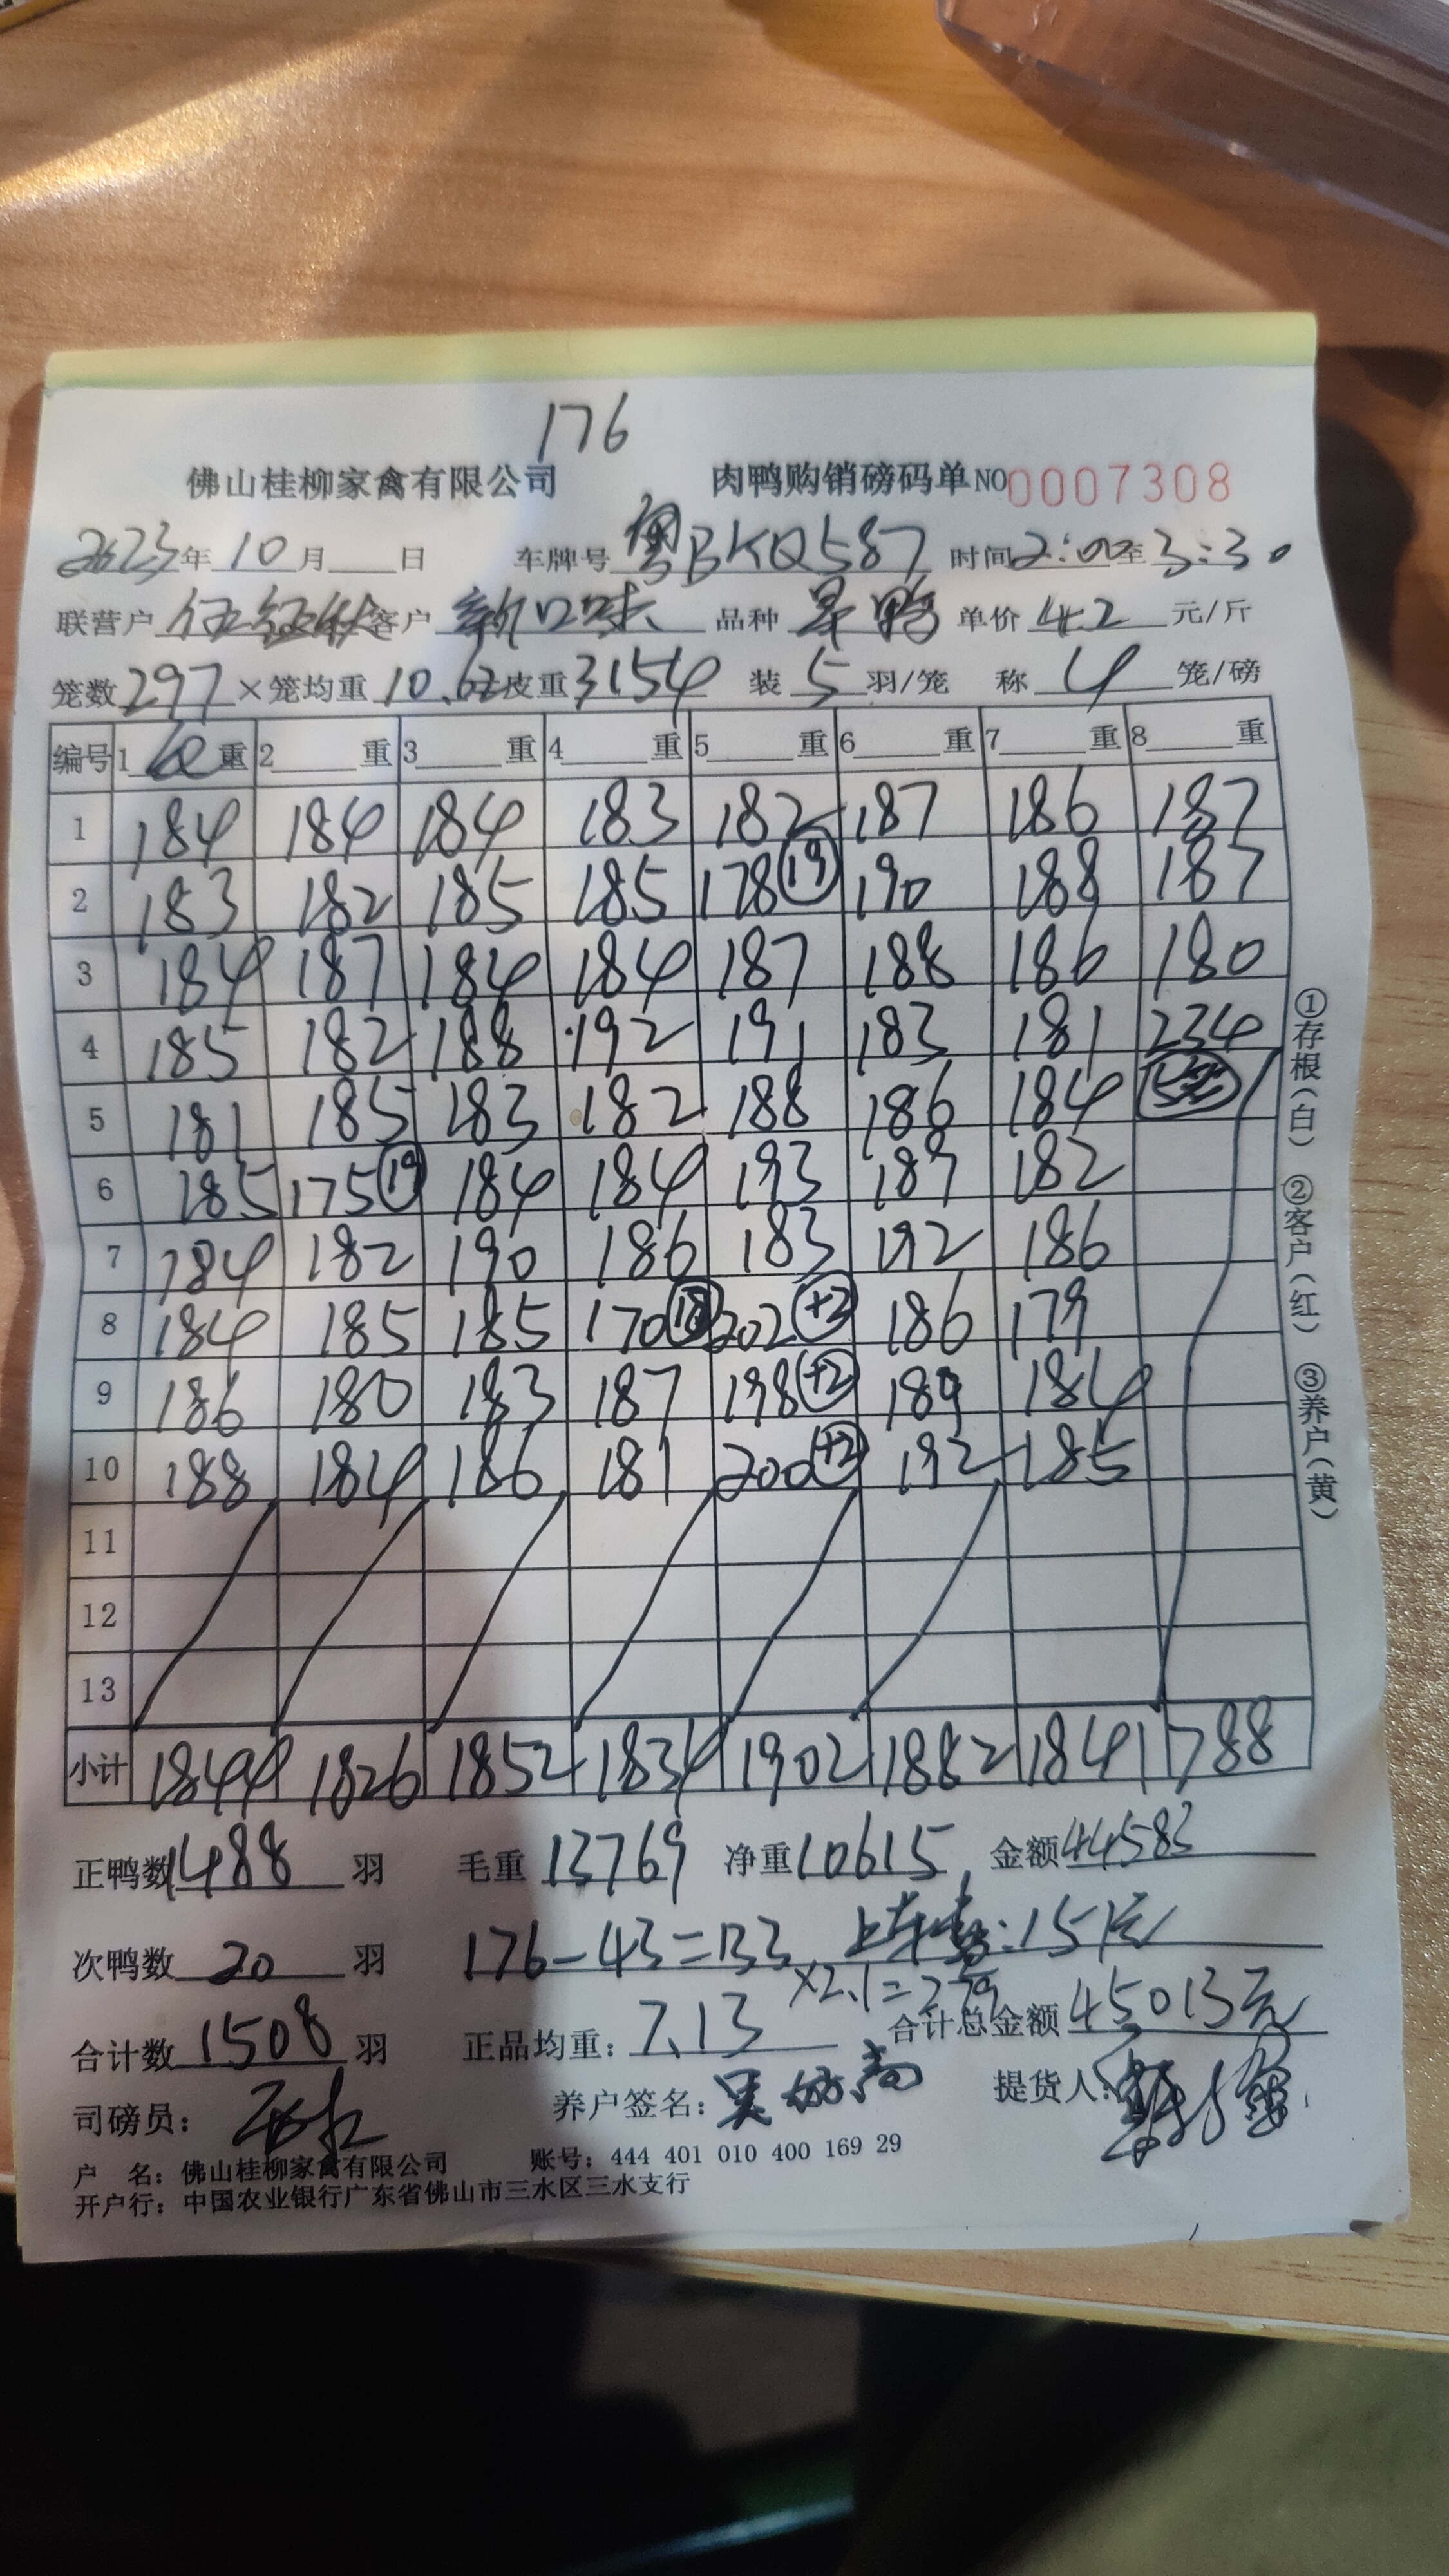 176
佛山桂柳家禽有限公司 肉鸭购销磅码单 NO 0007308
2023年 10月 日 车牌号 粤BKQ587 时间 2:00至3:30
联营户 客户 新口味 品种 单价 4.2 元/斤
笼数 297 ×笼均重 10.62 皮重 3154 装 5 羽/笼 称 4 笼/磅
编号 1 重 2 重 3 重 4 重 5 重 6 重 7 重 8 重
1 184 184 184 183 182 187 186 187
2 183 182 185 185 178 (19) 190 188 187
3 184 187 184 184 187 188 186 180
4 185 182 188 192 191 183 181 234
5 181 185 183 182 188 186 184
6 185 175 (19) 184 184 193 189 182
7 184 182 190 186 183 192 186
8 184 185 185 170 (18) 202 (+2) 186 179
9 186 180 183 187 198 (+2) 189 184
10 188 184 186 181 200 (+2) 192 185
11
12
13
小计 1844 1826 1852 1834 1902 1882 1841 788
正鸭数 1488 羽 毛重 13769 净重 10615 金额 44583
次鸭数 20 羽 176-43=133 上车费:151元
×2.1=279
合计数 1508 羽 正品均重: 7.13 合计总金额 45013元
司磅员: 养户签名: 提货人:
户 名: 佛山桂柳家禽有限公司 账号: 444 401 010 400 169 29
开户行: 中国农业银行广东省佛山市三水区三水支行
①存根(白) ②客户(红) ③养户(黄)